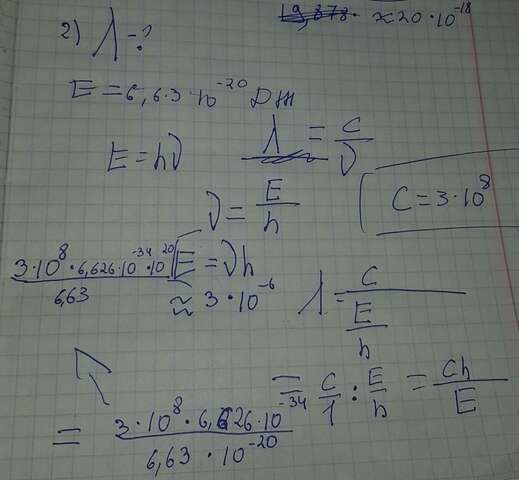 ≈20·10⁻¹⁸
2) λ-?
E=6,63·10⁻²⁰ Дж
E=hν λ=c/ν
ν=E/h
C=3·10⁸
E=νh
3·10⁸·6,626·10⁻³⁴·10²⁰/6,63 ≈3·10⁻⁶
λ=c/(E/h)
=c/1:E/h=ch/E
=3·10⁸·6,626·10⁻³⁴/6,63·10⁻²⁰